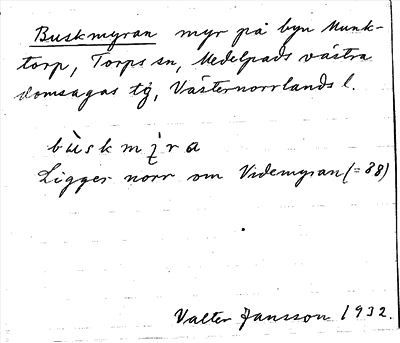 Buskmyran myr på byn Munk-
torp, Torps sn, Medelpads västra
domsagas tg, Västernorrlands l.
bùskmi̮ra
Ligger norr om Videmyran (= 88)
Valter Jansson 1932.